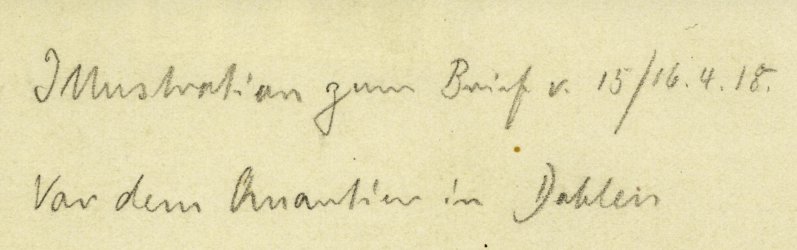 Illustration zum Brief v. 15/16.4.18.
Vor dem Quartier in Dahlen